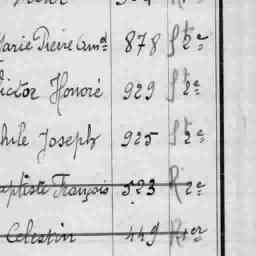 Marie Pierre Amd 878 St 2e
Victor Honoré 929 St 2e
hile Joseph 925 St 2e
Baptiste François 523 R 2e
Celestin 449 R 1er